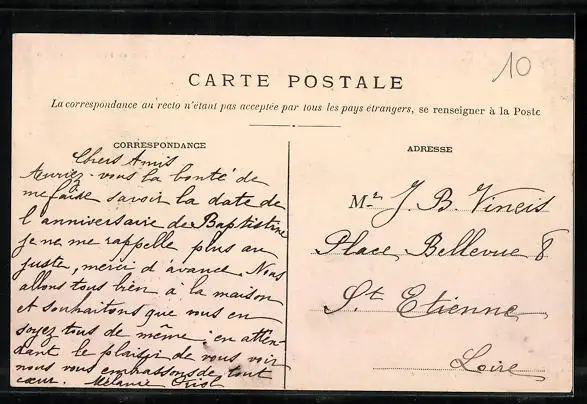 10
CARTE POSTALE
La correspondance au recto n'étant pas acceptée par tous les pays étrangers, se renseigner à la Poste
CORRESPONDANCE
Chers Amis
Auriez-vous la bonté de
me faire savoir la date de
l'anniversaire de Baptistine
je ne me rappelle plus au
juste, merci d'avance. Nous
allons tous bien à la maison
et souhaitons que vous en
soyez tous de même. en atten-
dant le plaisir de vous voir
nous vous embrassons de tout
cœur. Mélanie
ADRESSE
Mr J. B. Vincis
Place Bellevue 8
St Etienne
Loire